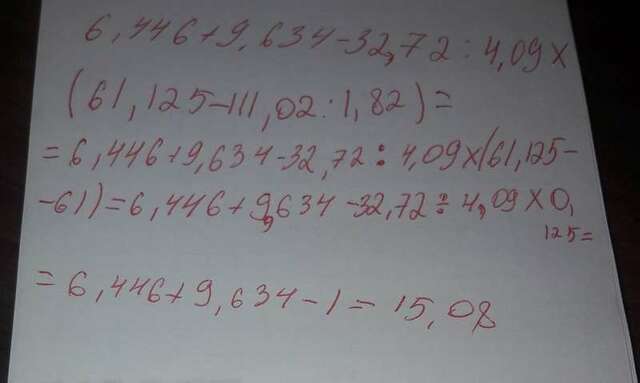 6,446+9,634-32,72:4,09×
(61,125-111,02:1,82)=
=6,446+9,634-32,72:4,09×(61,125-
-61)=6,446+9,634-32,72:4,09×0,
125=
=6,446+9,634-1=15,08